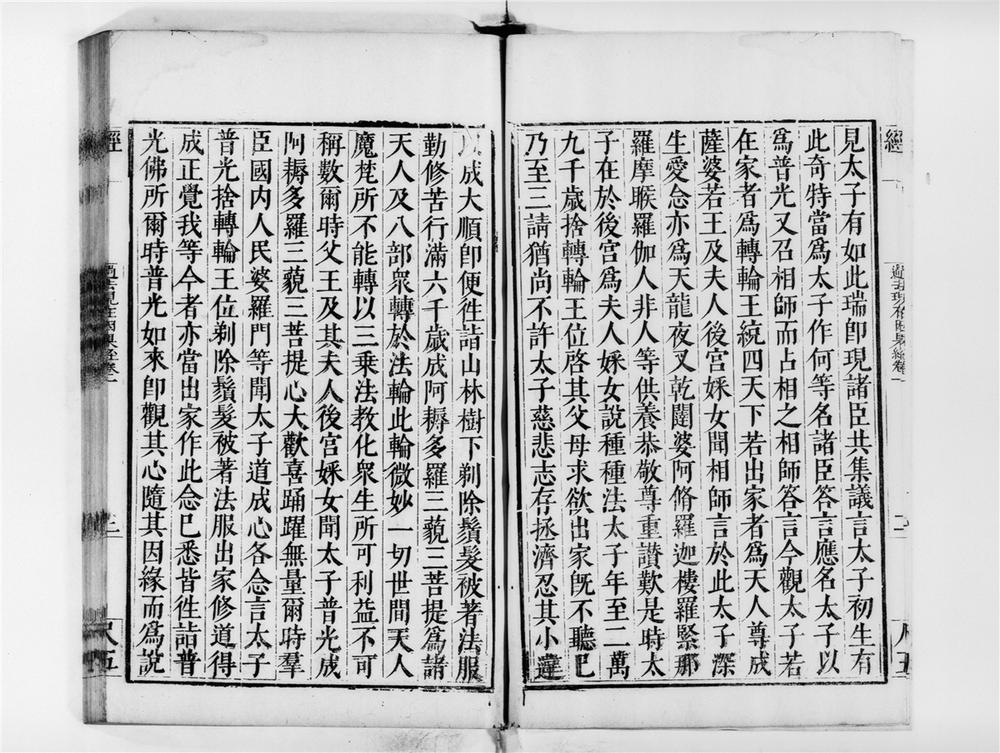 見太子有如此瑞即現諸臣共集議言太子初生有
此奇特當爲太子作何等名諸臣答言應名太子以
爲普光又召相師而占相之相師答言今觀太子若
在家者爲轉輪王統四天下若出家者爲天人尊成
薩婆若王及夫人後宮婇女聞相師言於此太子深
生愛念亦爲天龍夜叉乾闥婆阿脩羅迦樓羅緊那
羅摩睺羅伽人非人等供養恭敬尊重讃歎是時太
子在於後宮爲夫人婇女說種種法太子年至二萬
九千歲捨轉輪王位啓其父母求欲出家旣不聽已
乃至三請猶尚不許太子慈悲志存拯濟忍其小違
成大順即便徃詣山林樹下剃除鬚髮被著法服
勤修苦行滿六千歲成阿耨多羅三藐三菩提爲諸
天人及八部衆轉於法輪此輪微妙一切世間天人
魔梵所不能轉以三乘法教化衆生所可利益不可
稱數爾時父王及其夫人後宮婇女聞太子普光成
阿耨多羅三藐三菩提心大歡喜踊躍無量爾時羣
臣國内人民婆羅門等聞太子道成心各念言太子
普光捨轉輪王位剃除鬚髮被著法服出家修道得
成正覺我等今者亦當出家作此念已悉皆徃詣普
光佛所爾時普光如來即觀其心隨其因緣而爲說
經
過去現在因果經卷一